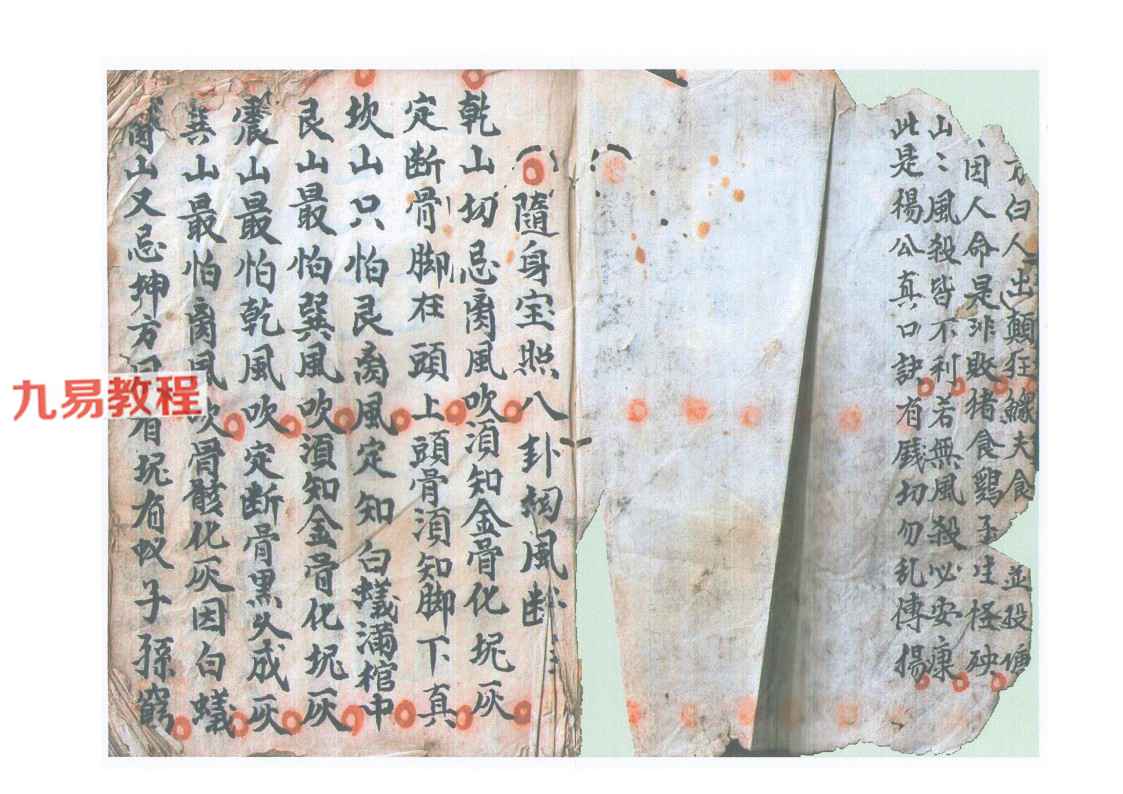 方白人出顛狂鰥夫食並投塘
因人命是非敗猪食鷄子生怪殃
山〻風殺皆不利若無風殺必安康
此是楊公真口訣有錢切勿乱傳揚
隨身宝照八卦細風断
乾山切忌离風吹須知金骨化坭灰
定断骨脚在頭上頭骨須知脚下真
坎山只怕艮离風定知白蟻滿棺中
艮山最怕巽風吹須知金骨化坭灰
震山最怕乾風吹定断骨黑久成灰
巽山最怕离風吹骨骸化灰因白蟻
离山又忌坤方有坭有蚁子孫窮
九易教程